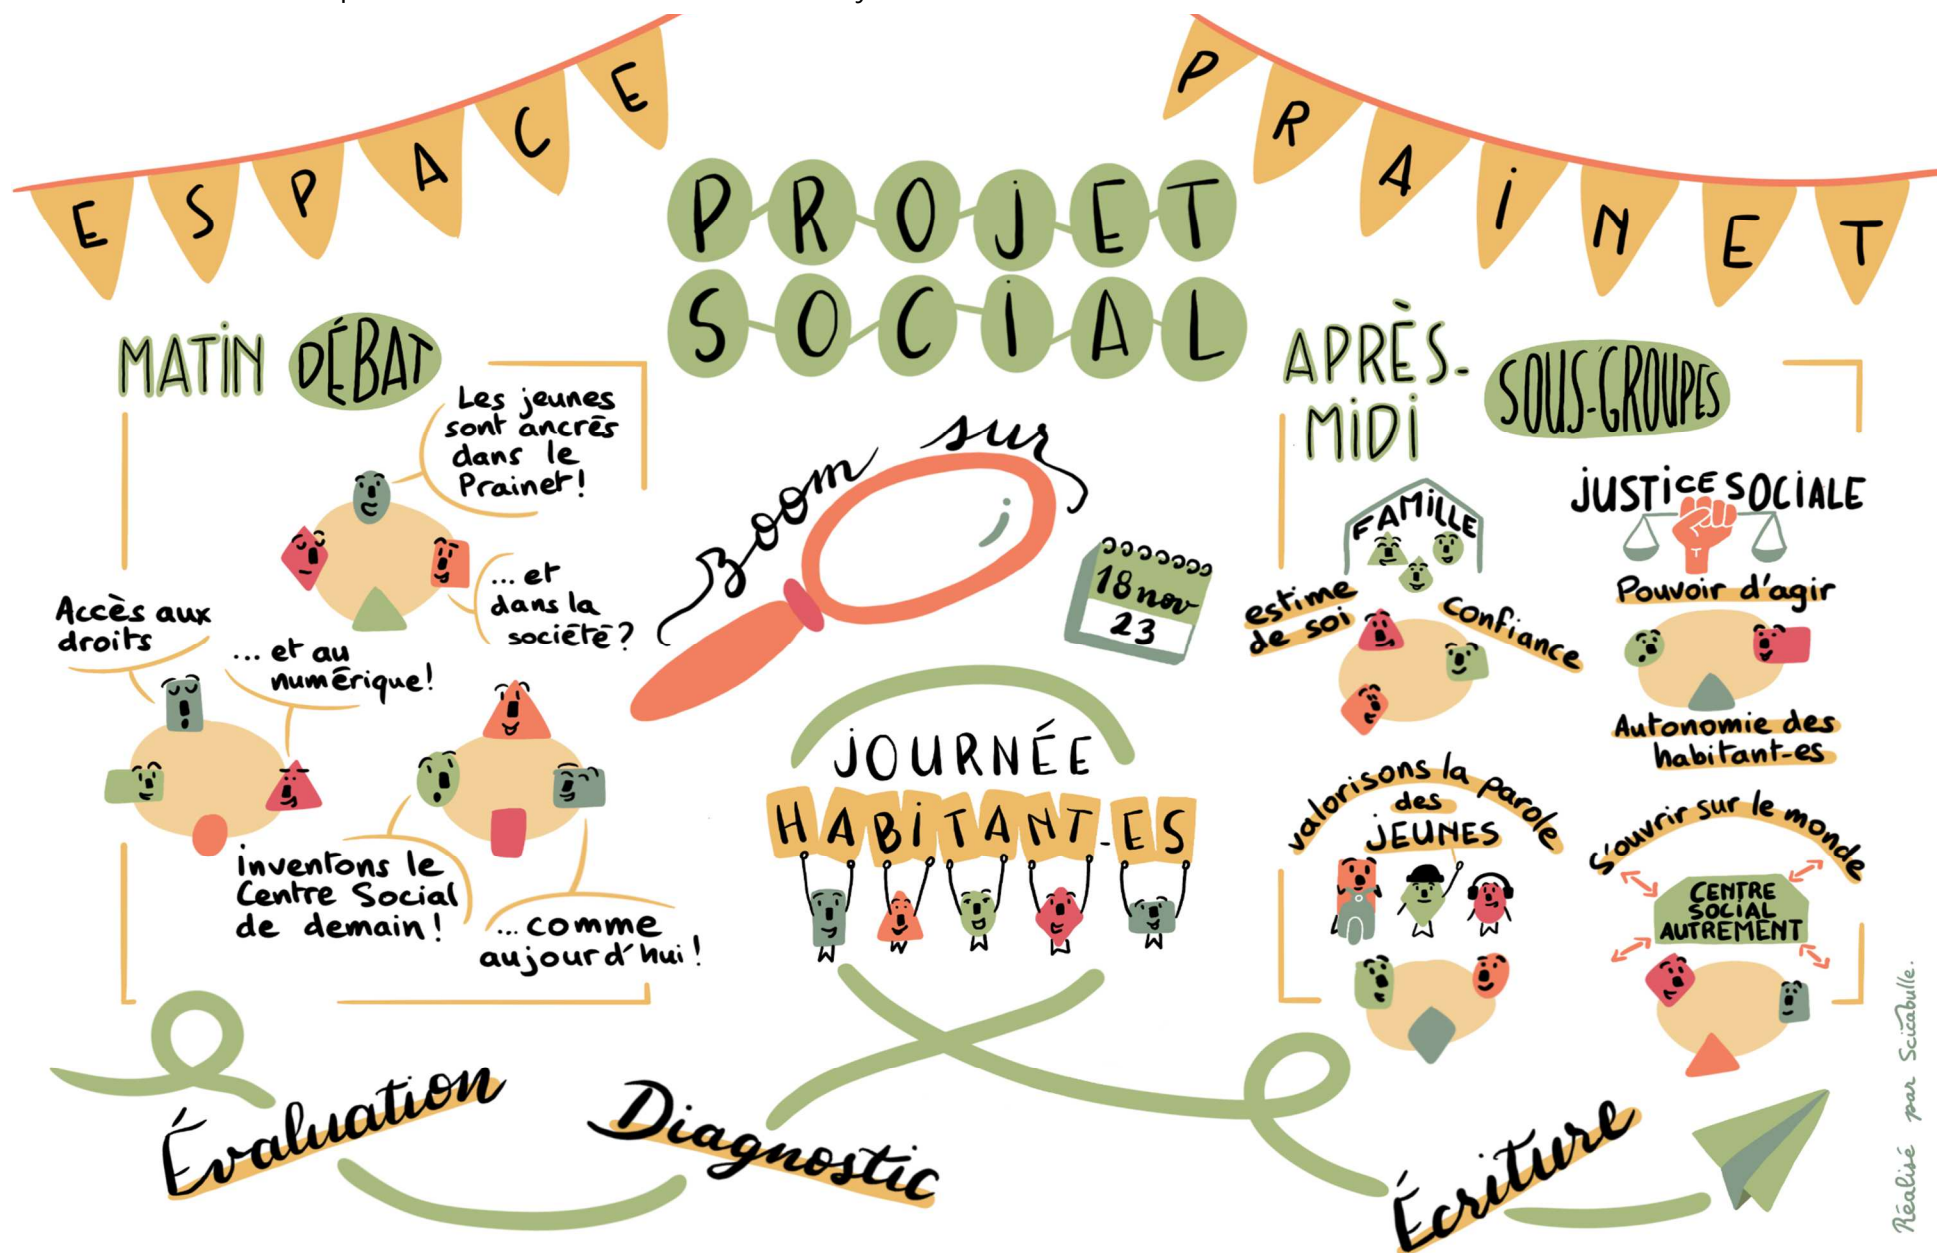 ESPACE
PRAINET
PROJET
SOCIAL
zoom sur
18 nov
23
JOURNÉE
HABITANT-ES
MATIN DÉBAT
Les jeunes
sont ancrés
dans le
Prainet!
... et
dans la
société?
Accès aux
droits
... et au
numérique!
inventons le
Centre Social
de demain!
... comme
aujourd'hui!
APRÈS-
MIDI
SOUS-GROUPES
FAMILLE
estime
de soi
confiance
JUSTICE SOCIALE
Pouvoir d'agir
Autonomie des
habitant-es
valorisons la parole
des
JEUNES
s'ouvrir sur le monde
CENTRE
SOCIAL
AUTREMENT
Évaluation
Diagnostic
Écriture
Réalisé par Scicabulle.